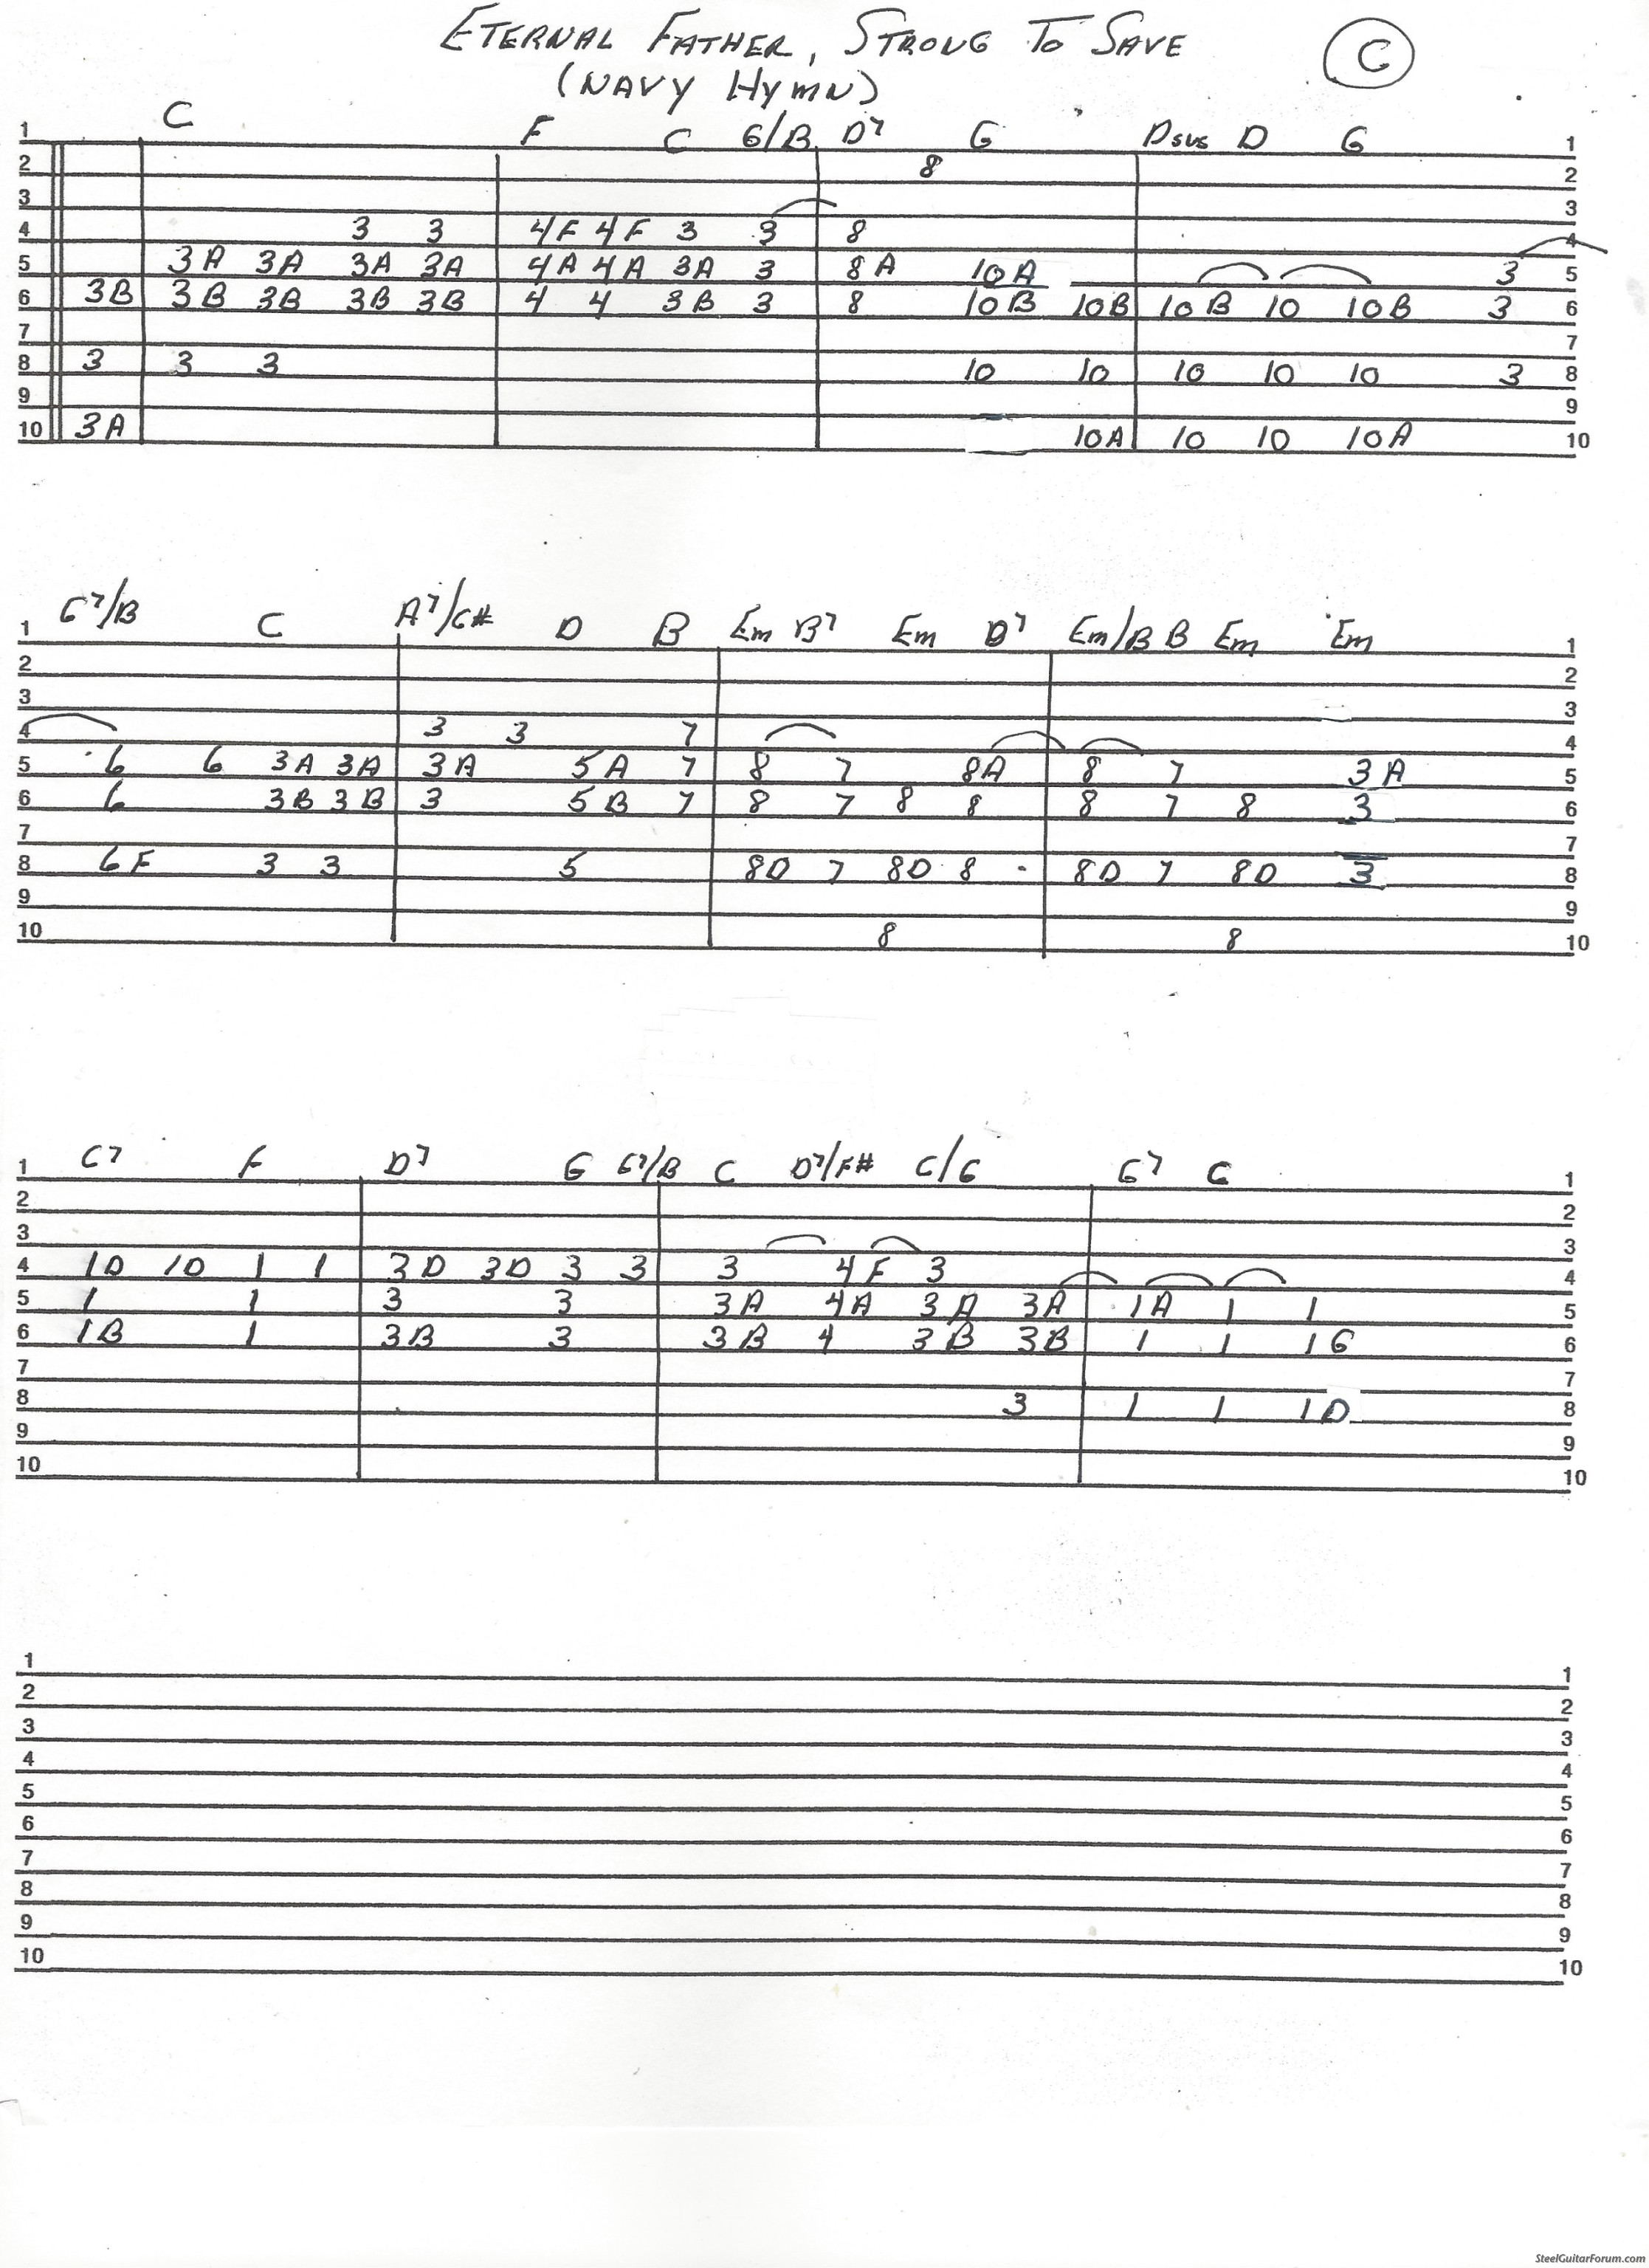 ETERNAL FATHER, STRONG TO SAVE
(NAVY HYMN)
C
C F C G/B D7 G Dsus D G
1 1
2 8 2
3 3
4 3 3 4F 4F 3 3 8 4
5 3A 3A 3A 3A 4A 4A 3A 3 8A 10A 3 5
6 3B 3B 3B 3B 3B 4 4 3B 3 8 10B 10B 10B 10 10B 3 6
7 7
8 3 3 3 10 10 10 10 10 3 8
9 9
10 3A 10A 10 10 10A 10
G7/B C A7/C# D B Em B7 Em D7 Em/B B Em Em
1 1
2 2
3 3
4 3 3 7 4
5 6 6 3A 3A 3A 5A 7 8 7 8A 8 7 3A 5
6 6 3B 3B 3 5B 7 8 7 8 8 8 7 8 3 6
7 7
8 6F 3 3 5 8D 7 8D 8 - 8D 7 8D 3 8
9 9
10 8 8 10
C7 F D7 G G7/B C D7/F# C/G G7 C
1 1
2 2
3 3
4 1D 1D 1 1 3D 3D 3 3 3 4F 3 4
5 1 1 3 3 3A 4A 3A 3A 1A 1 1 5
6 1B 1 3B 3 3B 4 3B 3B 1 1 1G 6
7 7
8 3 1 1 1D 8
9 9
10 10
1 1
2 2
3 3
4 4
5 5
6 6
7 7
8 8
9 9
10 10
SteelGuitarForum.com